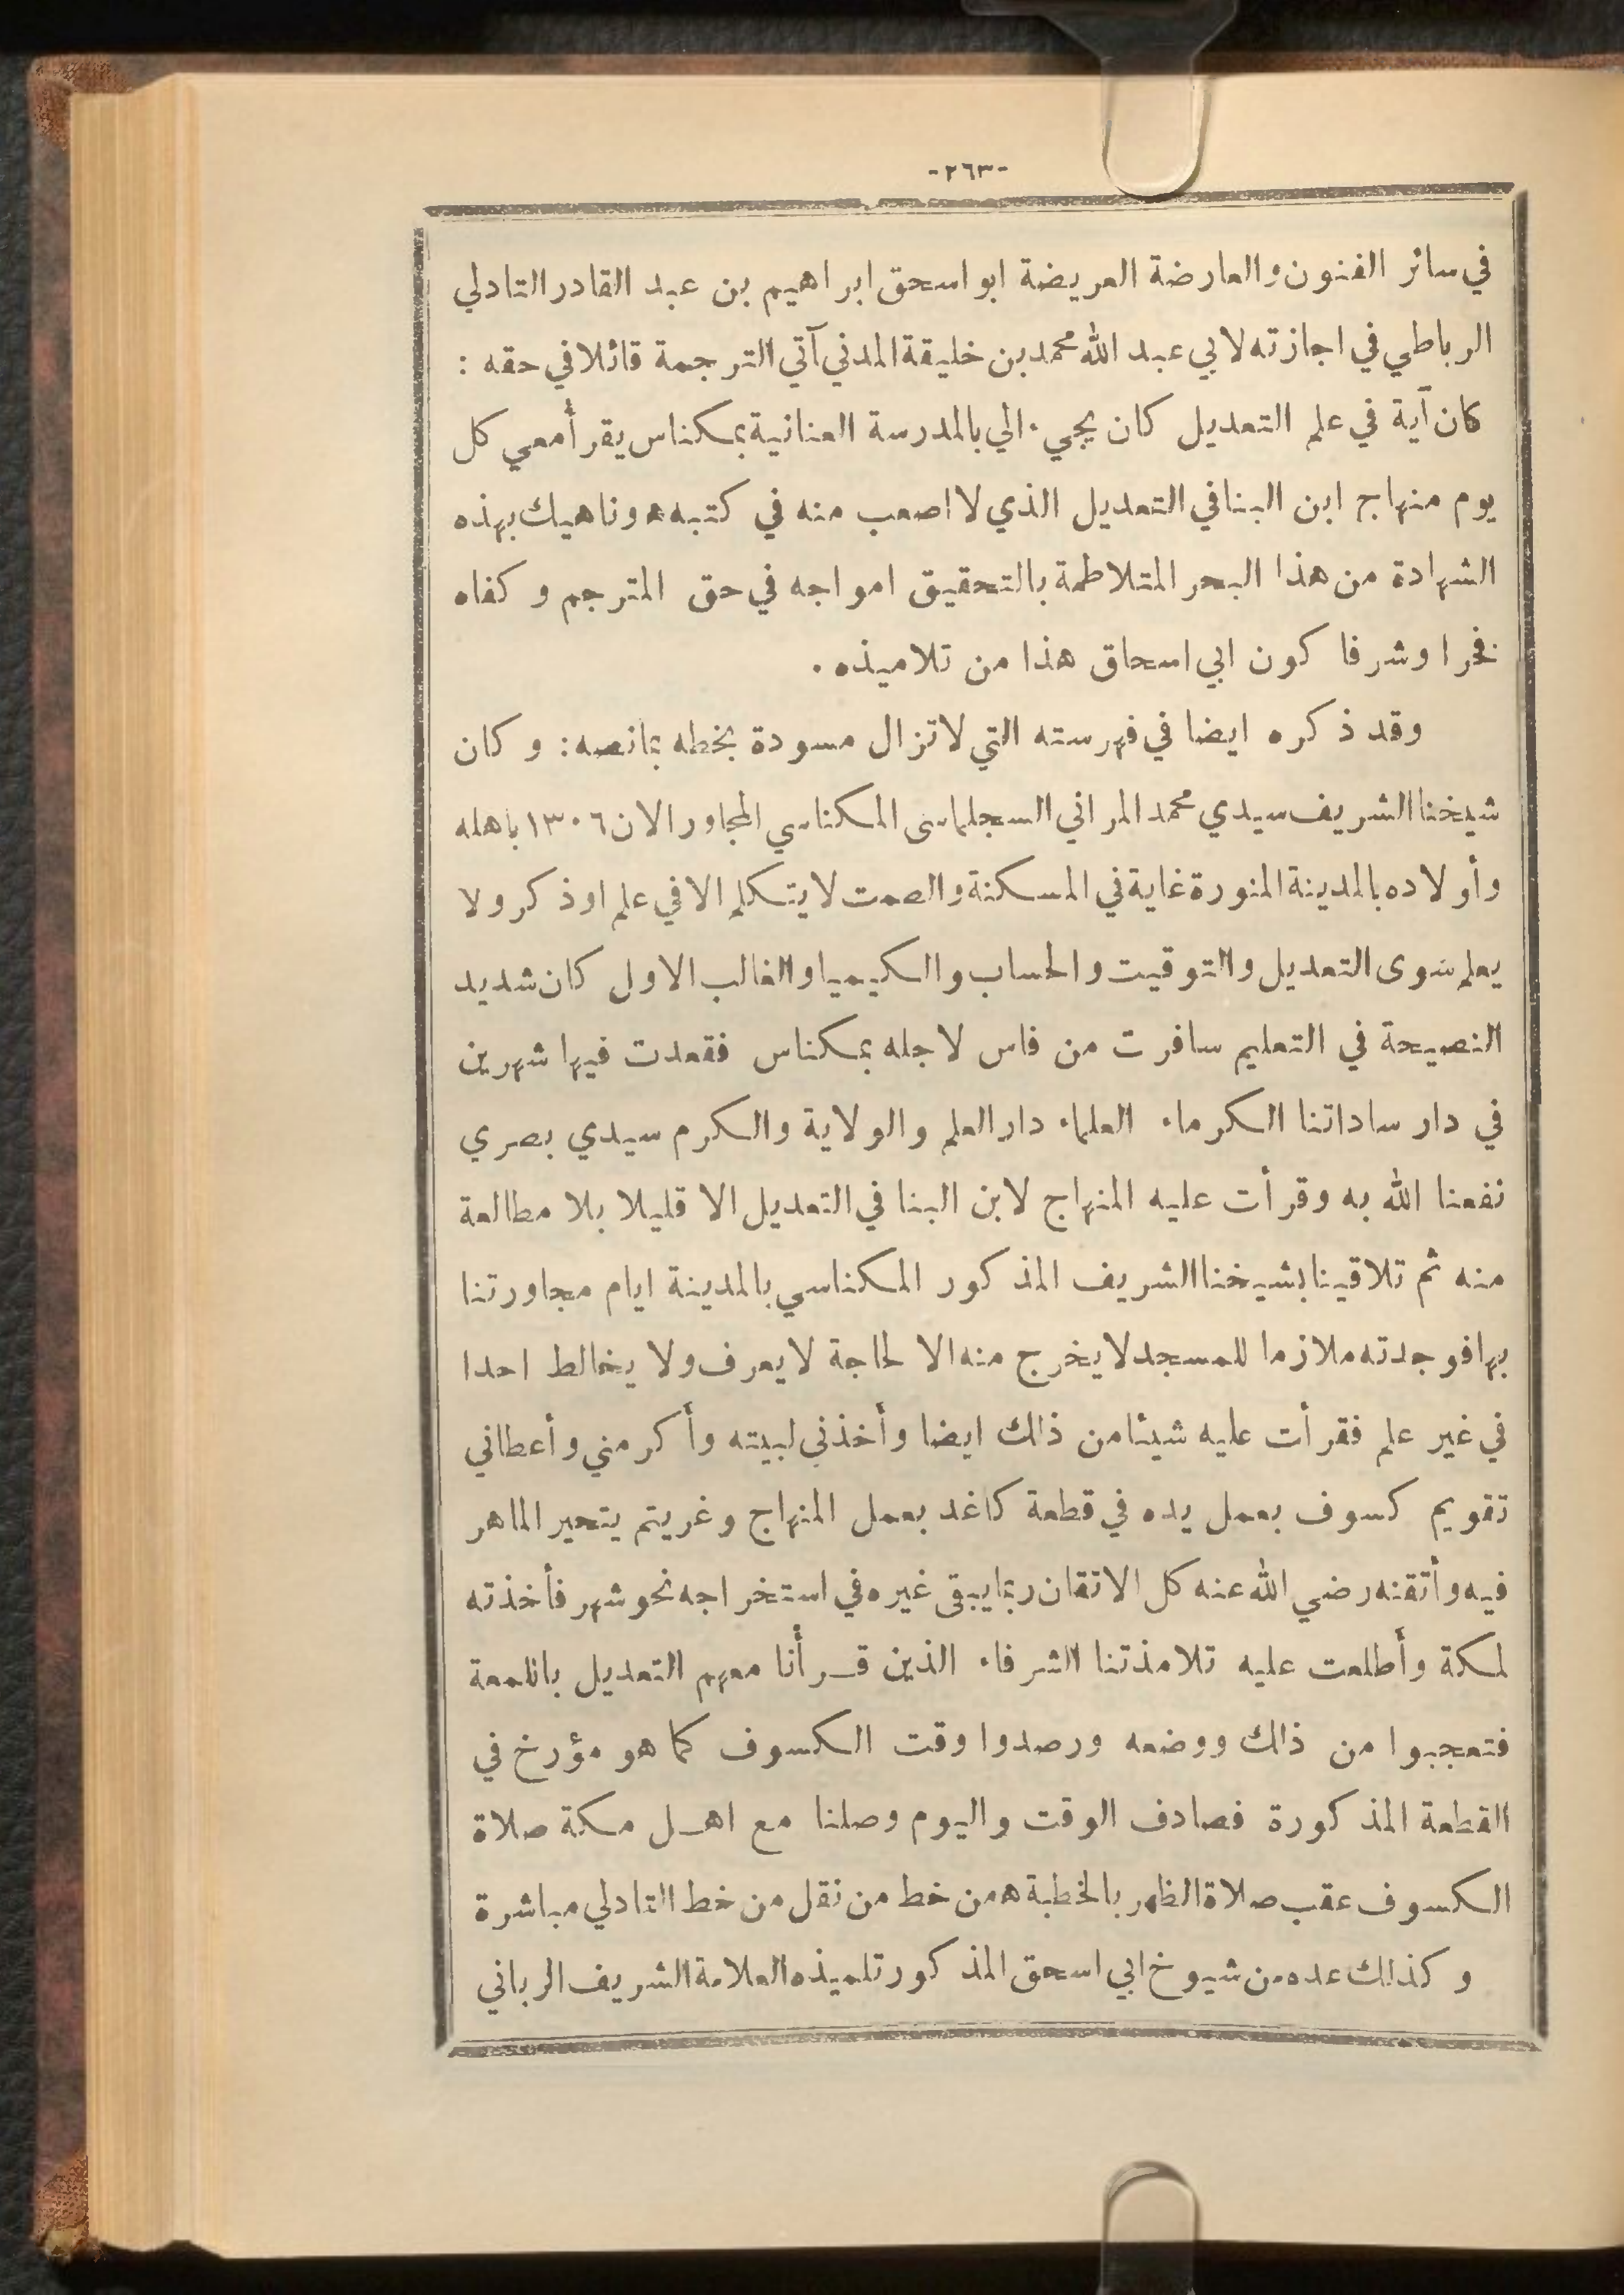 -٢٦٣-
في سائر الفنون والعارضة العريضة ابو اسحق ابراهيم بن عبد القادر التادلي
الرباطي في اجازته لابي عبد الله محمد بن خليقة المدني آتي الترجمة قائلا في حقه :
كان آية في علم التعديل كان يجيء الي بالمدرسة العنانية بمكناس يقرأ معي كل
يوم منهاج ابن البنا في التعديل الذي لا اصعب منه في كتبه ه وناهيك بهذه
الشهادة من هذا البحر المتلاطمة بالتحقيق امواجه في حق المترجم و كفاه
فخرا وشرفا كون ابي اسحاق هذا من تلاميذه .
وقد ذكره ايضا في فهرسته التي لا تزال مسودة بخطه بما نصه : و كان
شيخنا الشريف سيدي محمد المراني السجلماسى المكناسي المجاور الان ١٣٠٦ باهله
وأولاده بالمدينة المنورة غاية في المسكنة والصمت لا يتكلم الا في علم او ذكر ولا
يعلم سوى التعديل والتوقيت والحساب والكيميا والغالب الاول كان شديد
النصيحة في التعليم سافرت من فاس لاجله بمكناس فقعدت فيها شهرين
في دار ساداتنا الكرماء العلماء دار العلم والولاية والكرم سيدي بصري
نفعنا الله به وقرأت عليه المنهاج لابن البنا في التعديل الا قليلا بلا مطالعة
منه ثم تلاقينا بشيخنا الشريف المذكور المكناسي بالمدينة ايام مجاورتنا
بها فوجدته ملازما للمسجد لا يخرج منه الا لحاجة لا يعرف ولا يخالط احدا
في غير علم فقرأت عليه شيئا من ذالك ايضا وأخذني لبيته وأكرمني وأعطاني
تقويم كسوف بعمل يده في قطعة كاغد بعمل المنهاج وغريتم يتحير الماهر
فيه وأتقنه رضي الله عنه كل الاتقان ربما يبقى غيره في استخراجه نحو شهر فأخذته
لمكة وأطلعت عليه تلامذتنا الشرفاء الذين قـرأنا معهم التعديل باللمعة
فتعجبوا من ذالك ووضعه ورصدوا وقت الكسوف كما هو مؤرخ في
القطعة المذكورة فصادف الوقت واليوم وصلنا مع اهـل مكة صلاة
الكسوف عقب صلاة الظهر بالخطبة ه من خط من نقل من خط التادلي مباشرة
و كذلك عده من شيوخ ابي اسحق المذكور تلميذه العلامة الشريف الرباني